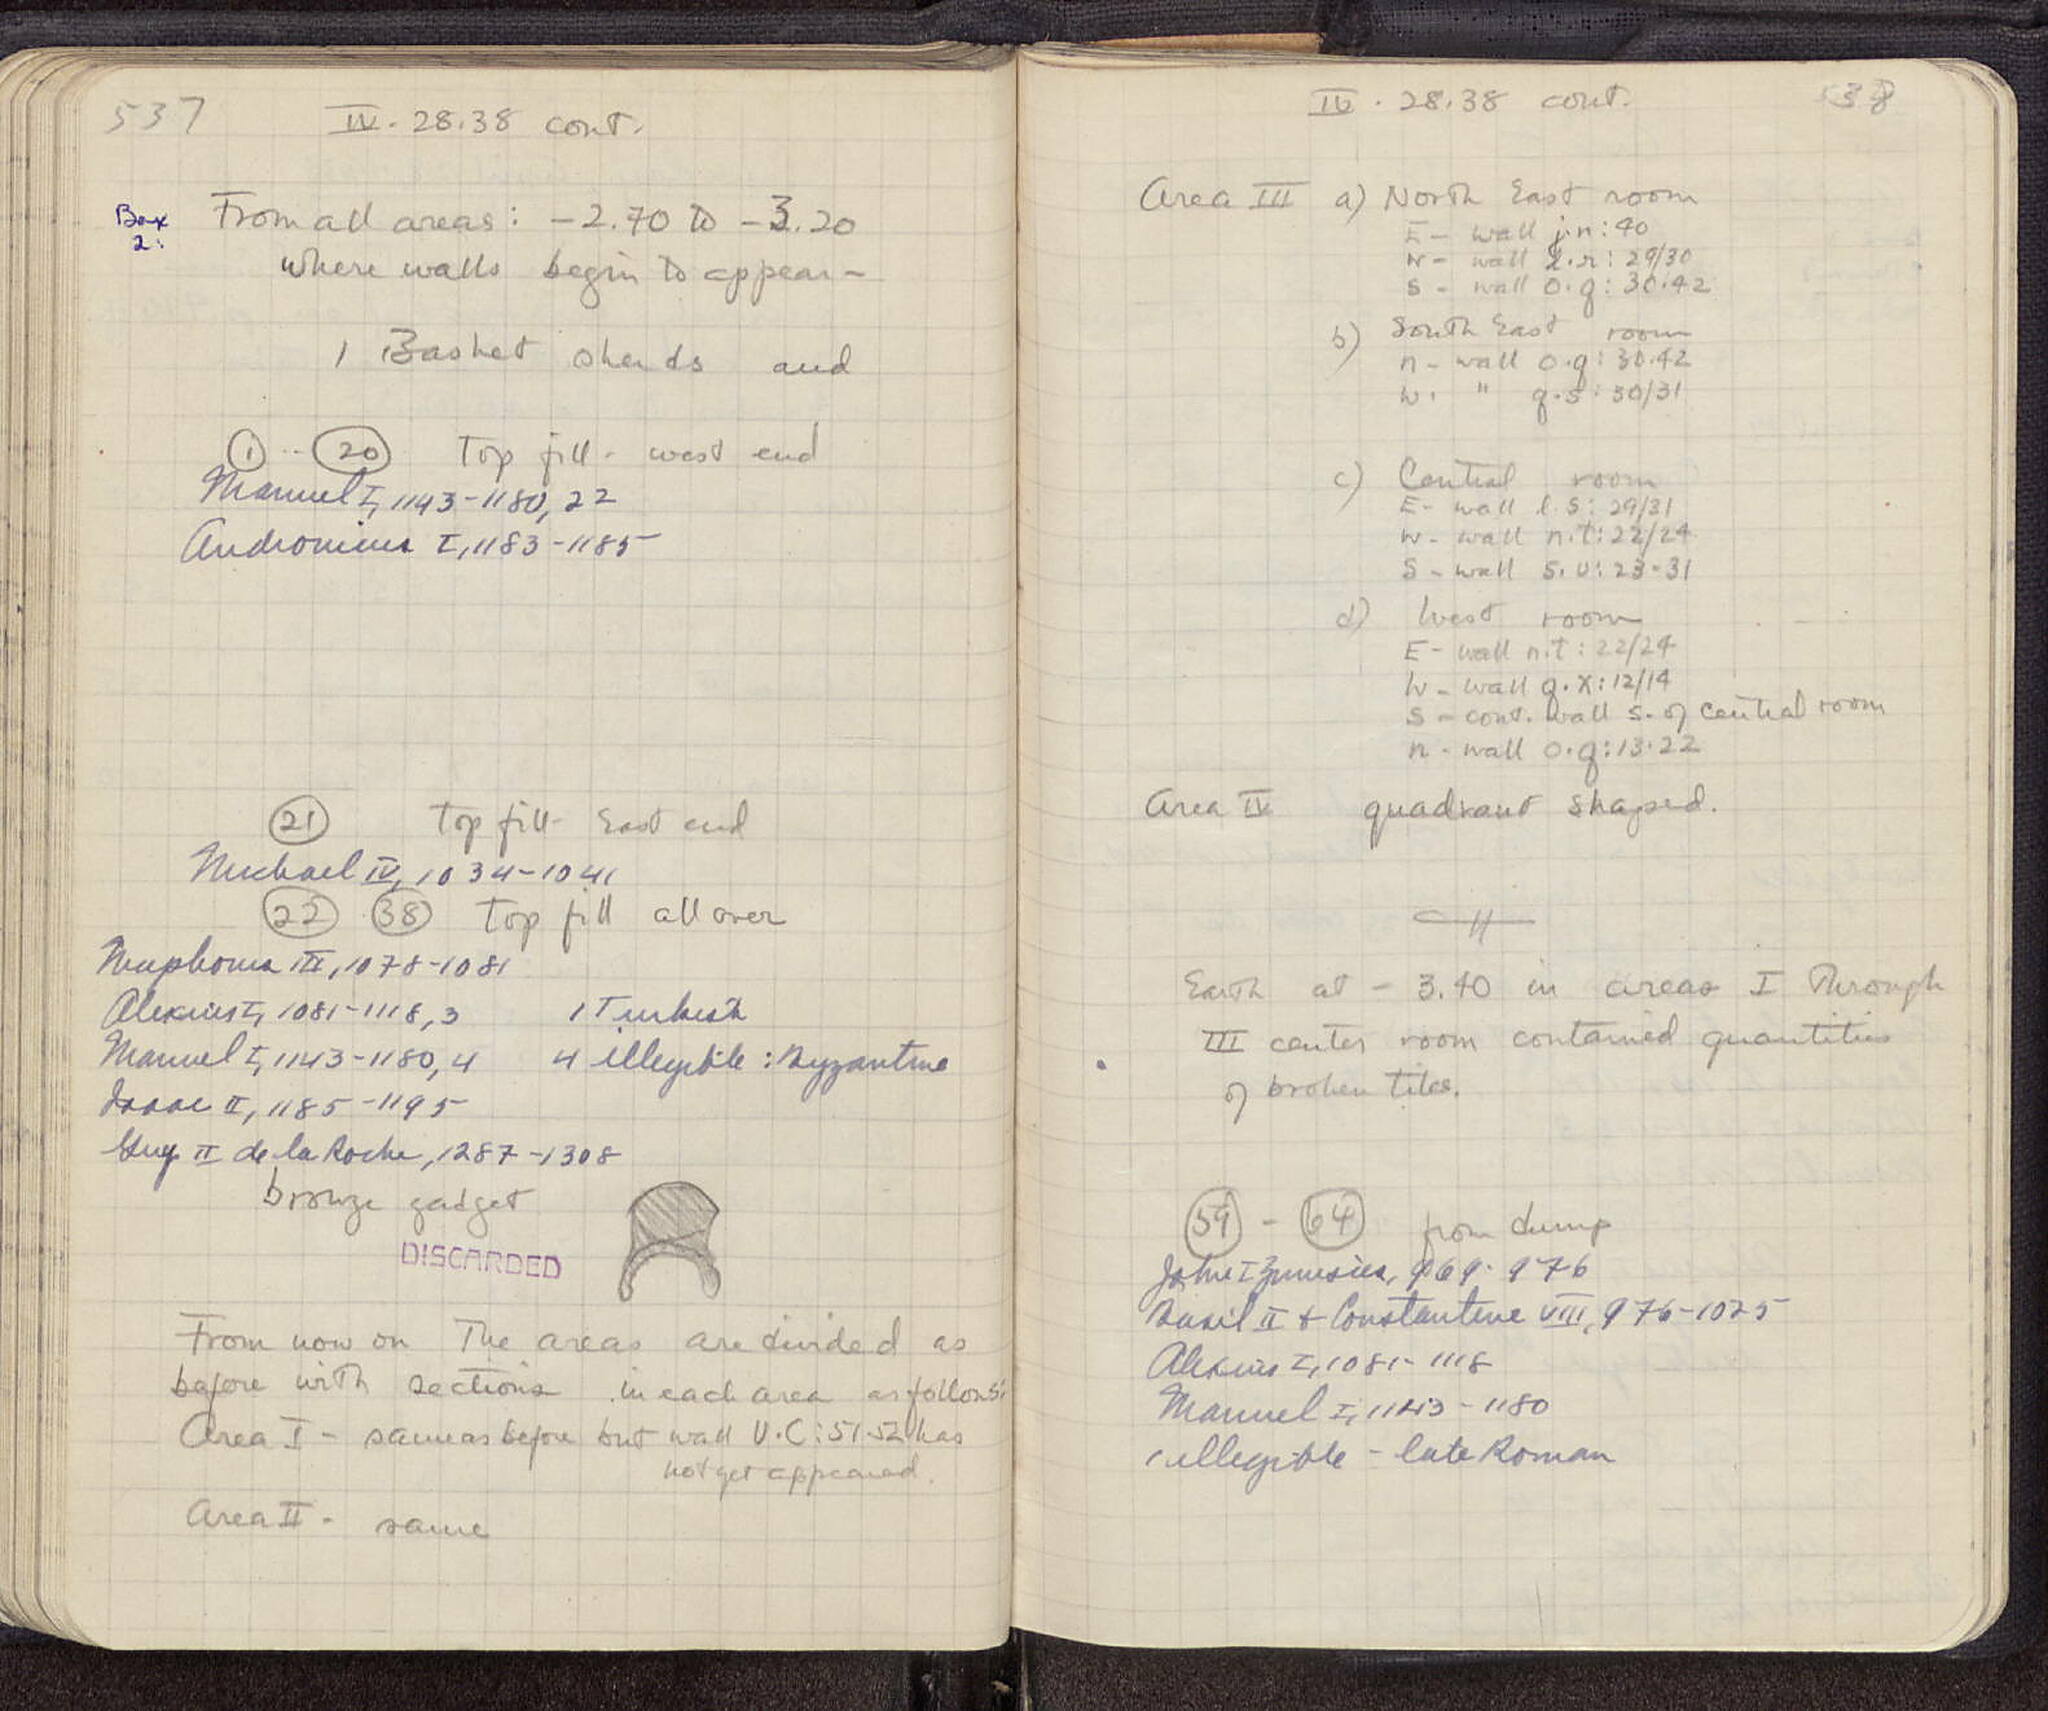 537
IV. 28.38 cont.
Box 2:
From all areas: -2.70 to -3.20
where walls begin to appear -
1 Basket sherds and
1 .. 20 Top fill - west end
Manuel I, 1143-1180, 22
Andronicus I, 1183-1185
21 Top fill - East end
Michael IV, 1034-1041
22 . 38 Top fill all over
Nicephorus III, 1078-1081
Alexius I, 1081-1118, 3 1 Turkish
Manuel I, 1143-1180, 4 4 illegible: Byzantine
Isaac II, 1185-1195
Guy II de la Roche, 1287-1308
bronze gadget
DISCARDED
From now on the areas are divided as
before with sections in each area as follows:
Area I - same as before but wall U.C: 51-52 has
not yet appeared.
Area II - same
IV. 28.38 cont.
538
Area III a) North East room
E - wall j.n: 40
W - wall l.r: 29/30
S - wall o.q: 30.42
b) South East room
n - wall o.q: 30.42
W. " q.s: 30/31
c) Central room
E - wall l.s: 29/31
W - wall n.t: 22/24
S - wall s.u: 23-31
d) West room
E - wall n.t: 22/24
W - wall q.x: 12/14
S - cont. wall s. of central room
n - wall o.q: 13.22
Area IV quadrant shaped.
Earth at - 3.40 in areas I through
III center room contained quantities
of broken tiles.
59 - 64 from dump
John I Zimisces, 969-976
Basil II & Constantine VIII, 976-1025
Alexius I, 1081-1118
Manuel I, 1143-1180
1 illegible - late Roman